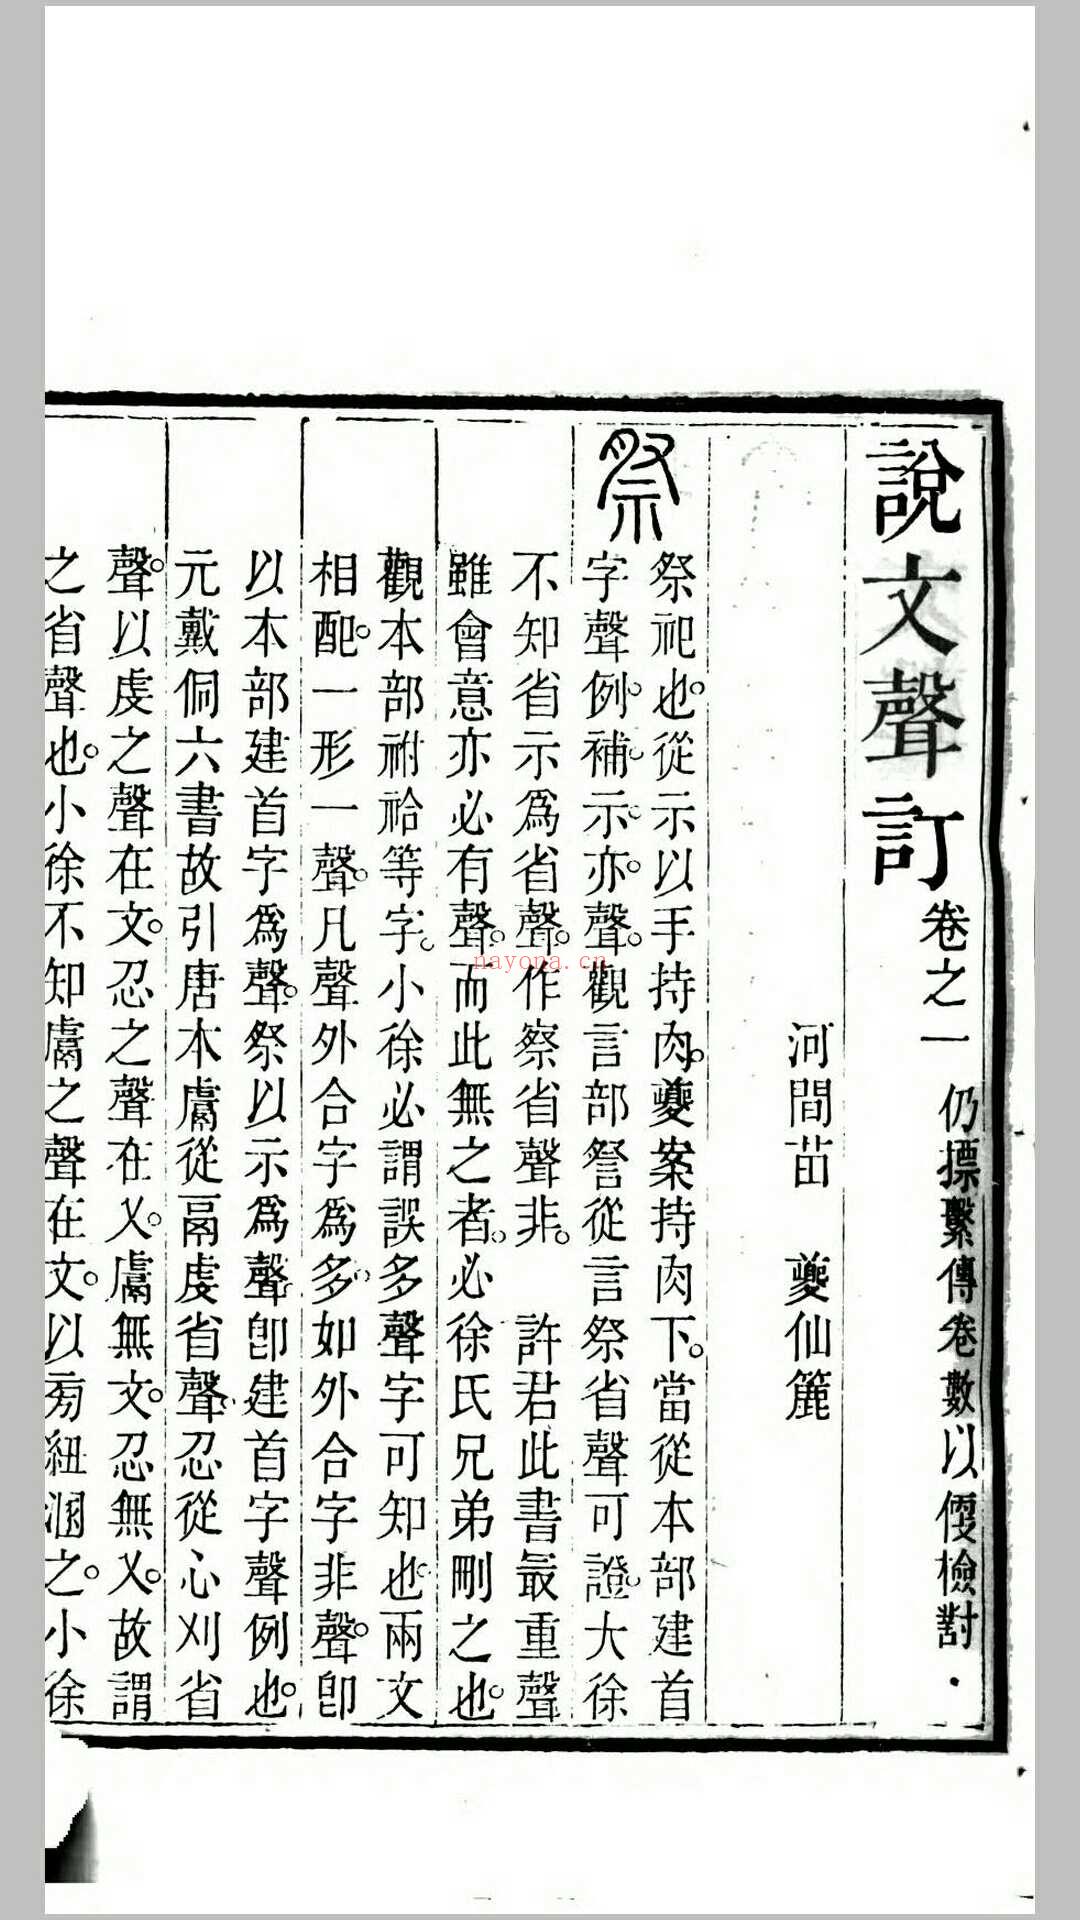 說文聲訂卷之一 仍㯹繫傳卷數以便檢對
河間苗 夔仙簏
祭 祭祀也。從示以手持肉。夔案持肉下。當從本部建首
字聲例。補示亦聲。觀言部詧從言祭省聲可證。大徐
不知省示爲省聲。作察省聲非。 許君此書最重聲
雖會意亦必有聲。而此無之者。必徐氏兄弟刪之也。
觀本部祔祫等字。小徐必謂誤多聲字可知也。兩文
相配。一形一聲。凡聲外合字爲多。如外合字非聲。卽
以本部建首字爲聲。祭以示爲聲。卽建首字聲例也。
元戴侗六書故引唐本鬳從鬲虔省聲。忍從心刈省
聲。以虔之聲在文。忍之聲在乂。鬳無文。忍無乂。故謂
之省聲也。小徐不知鬳之聲在文。以旁紐溷之。小徐
nayona.cn